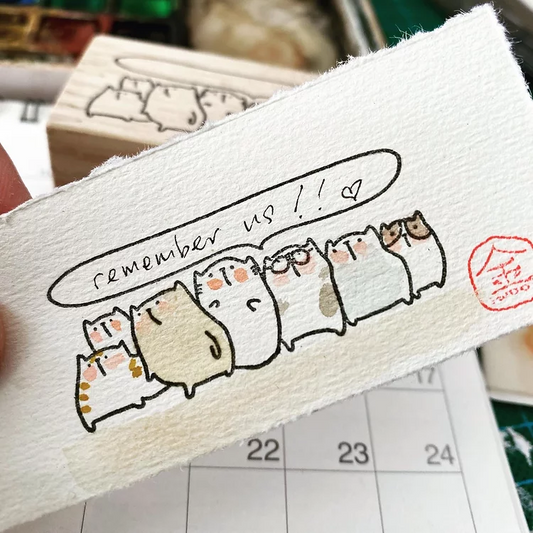 remember us!! ♡
17
22 23 24